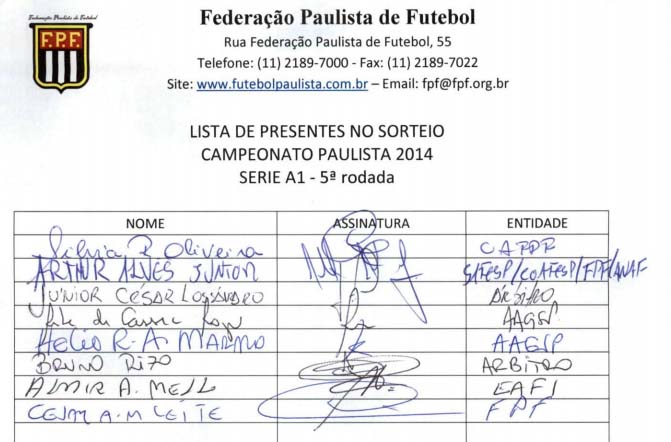 Federação Paulista de Futebol
F.P.F
Federação Paulista de Futebol
Rua Federação Paulista de Futebol, 55
Telefone: (11) 2189-7000 - Fax: (11) 2189-7022
Site: www.futebolpaulista.com.br – Email: fpf@fpf.org.br
LISTA DE PRESENTES NO SORTEIO
CAMPEONATO PAULISTA 2014
SERIE A1 - 5ª rodada
NOME ASSINATURA ENTIDADE
Silvia R. Oliveira
ARTHUR ALVES JUNIOR SAFESP/COAFESP/FPF/ANAF
JÚNIOR CÉSAR Árbitro
AAGSP
HELIO R. A. MARMO AAGSP
BRUNO RIZO ARBITRO
ALMIR A. EAFI
CESAR A. M LEITE FPF